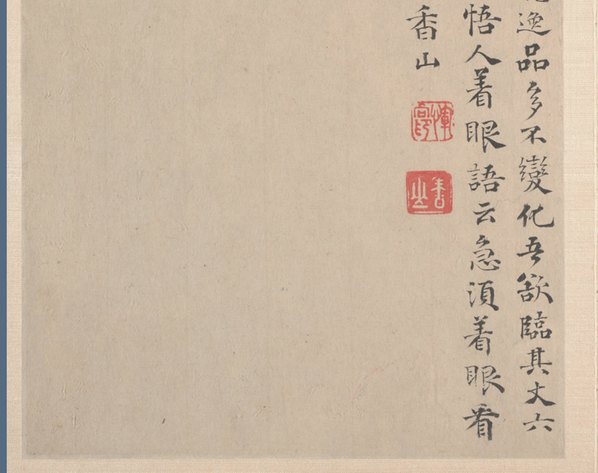 逸品多不變化吾欲臨其丈六
悟人着眼語云急須着眼看
香山